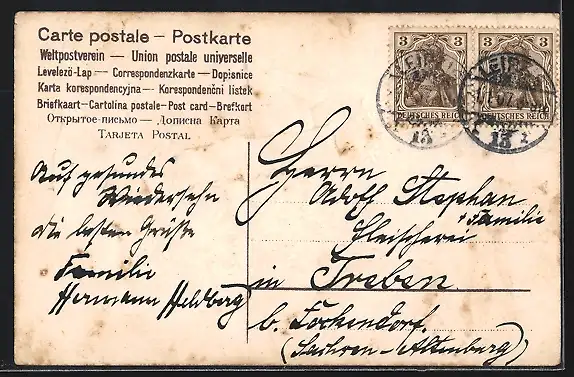 Carte postale — Postkarte
Weltpostverein — Union postale universelle
Levelező-Lap — Correspondenzkarte — Dopisnice
Karta korespondencyjna — Korespondenčni listek
Briefkaart – Cartolina postale – Post card – Brefkort
Открытое-письмо — Дописна Карта
TARJETA POSTAL
3 3 3 3
DEUTSCHES REICH
DEUTSCHES REICH
LEIPZ
LEIPZ
07
13
13
Auf gesundes
Wiedersehn
die besten Grüße
Familie
Hermann Heldberg
Herrn
Adolf Stephan
& Familie
Fleischerei
in Treben
b. Lockendorf.
(Sachsen-Altenburg)